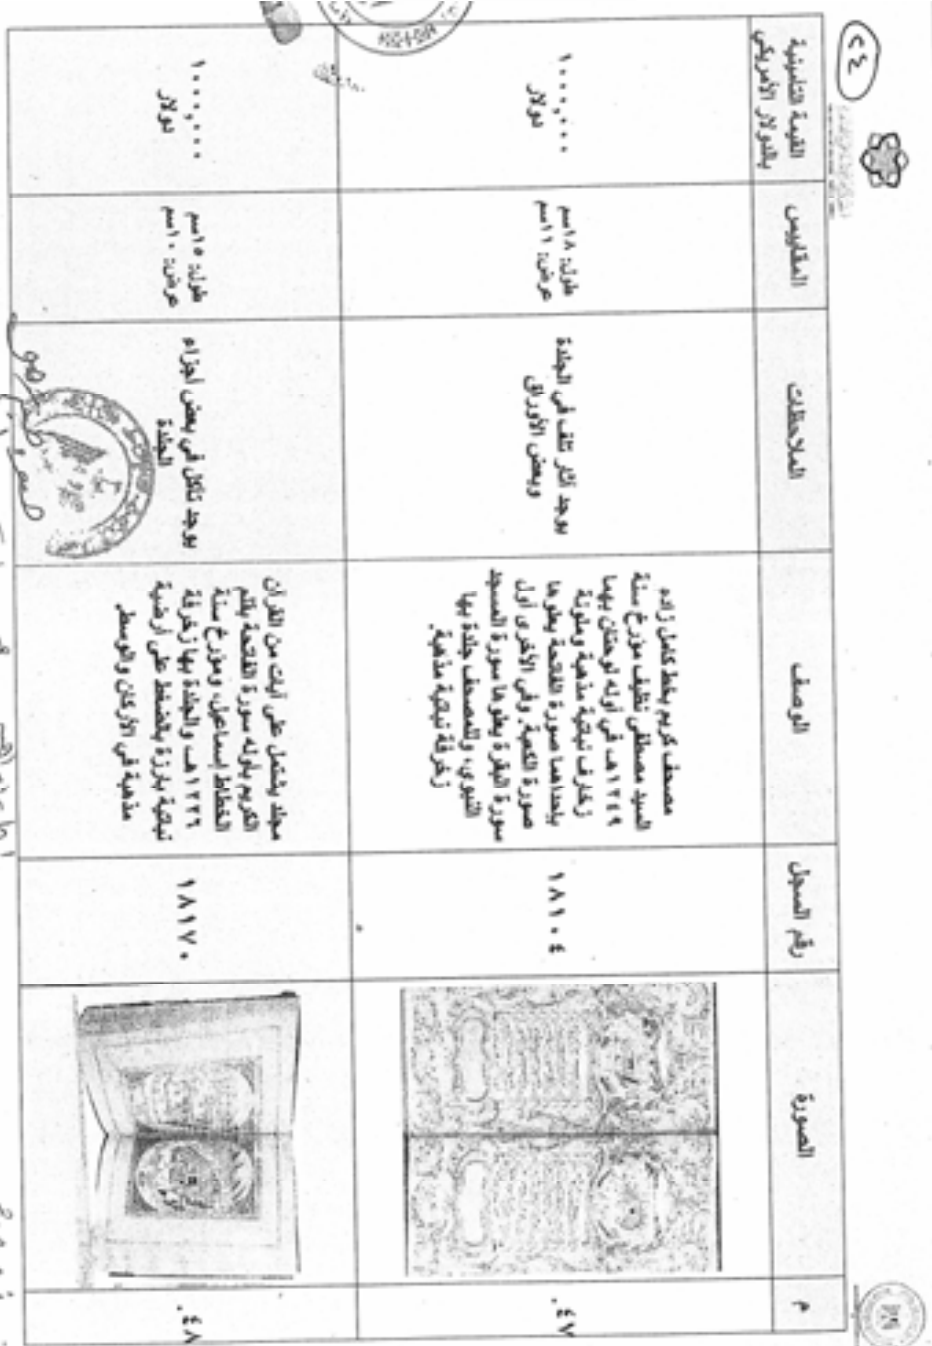 ٢٤
م
الصورة
رقم السجل
الوصف
الملاحظات
المقاييس
القيمة التأمينية
بالدولار الأمريكي
٤٧.
١٨١٠٤
مصحف كريم بخط كامل زاده
السيد مصطفى نظيف مؤرخ سنة
١٢٤٩هـ في أوله لوحتان بهما
زخارف نباتية مذهبة وملونة
بإحداهما صورة الفتحة يعلوها
صورة الكعبة. وفي الأخرى أول
سورة البقرة يعلوها سورة المسجد
النبوي، وللمصحف جلدة بها
زخرفة نباتية مذهبة.
يوجد آثار تلف في الجلدة
وبعض الأوراق
طول: ١٨سم
عرض: ١١سم
١٠٠٠,٠٠٠
دولار
٤٨.
١٨١٧٠
مجلد يشتمل على آيات من القرآن
الكريم بأوله سورة الفتحة بقلم
الخطاط إسماعيل، ومؤرخ سنة
١٢٢٦هـ والجلدة بها زخرفة
نباتية بارزة بالضغط على أرضية
مذهبة في الأركان والوسط.
يوجد تآكل في بعض أجزاء
الجلدة
طول: ١٥سم
عرض: ١٠سم
١٠٠٠,٠٠٠
دولار